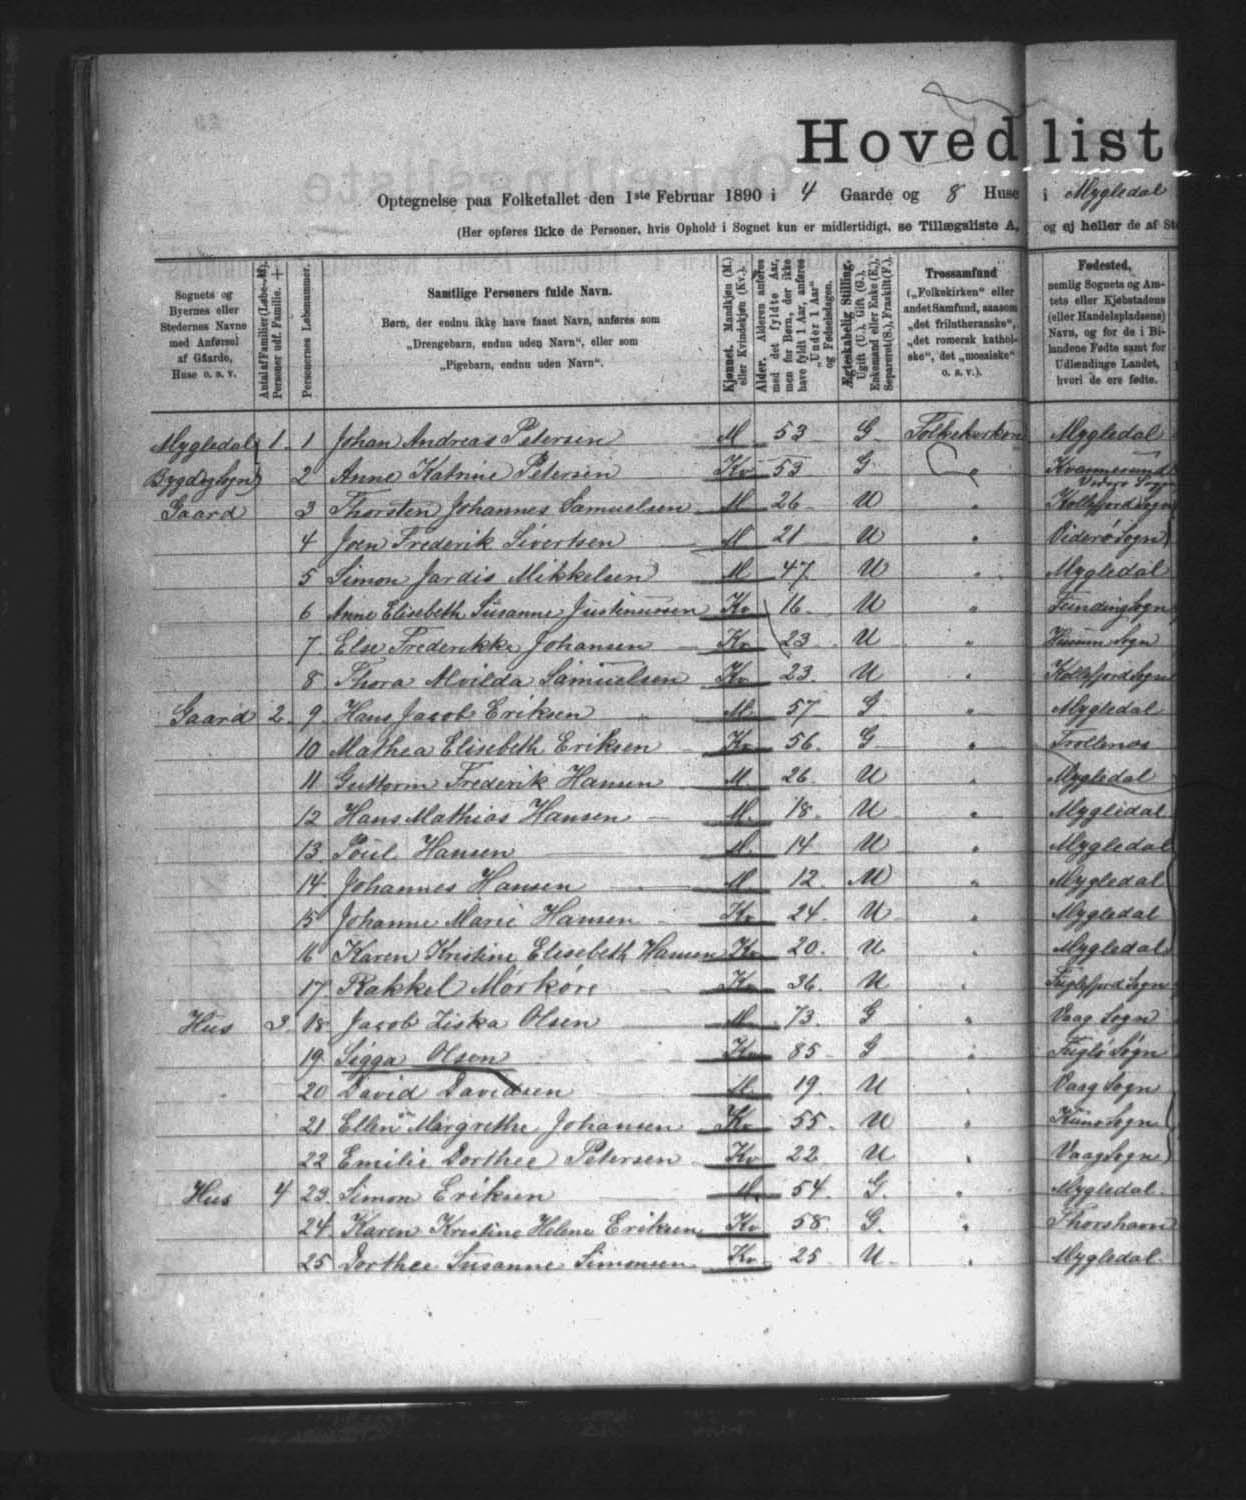 Hovedlist
Optegnelse paa Folketallet den 1ste Februar 1890 i 4 Gaarde og 8 Huse i Mygledal
(Her opføres ikke de Personer, hvis Ophold i Sognet kun er midlertidigt, se Tillægsliste A, og ej heller de af St
Sognets og Byernes eller Stedernes Navne med Anførsel af Gaarde, Huse o. s. v.
Antal af Familier (Løbe-No.). Personer udf. Familie. +
Personernes Løbenummer.
Samtlige Personers fulde Navn.
Børn, der endnu ikke have faaet Navn, anføres som
„Drengebarn, endnu uden Navn“, eller som
„Pigebarn, endnu uden Navn“.
Kjønnet. Mandkjøn (M.) eller Kvindekjøn (Kv.).
Alder. Alderen anføres med det fyldte Aar, men for Børn, der ikke have fyldt 1 Aar, anføres „Under 1 Aar“ og Fødselsdagen.
Ægteskabelig Stilling. Ugift (U.), Gift (G.), Enkemand eller Enke (E.), Separeret (S.), Fraskilt (F.).
Trossamfund („Folkekirken“ eller andet Samfund, saasom „det frilutheranske“, „det romersk katholske“, det „mosaiske“ o. s. v.).
Fødested, nemlig Sognets og Amtets eller Kjøbstadens (eller Handelspladsens) Navn, og for de i Bilandene Fødte samt for Udlændinge Landet, hvori de ere fødte.
Mygledal 1 1 Johan Andreas Petersen M 53 G Folkekirken Mygledal
Bygd og Sogn 2 Anne Katrine Petersen Kv 53 G " Kvannesund Viderø Sogn
Gaard 3 Thorsten Johannes Samuelsen M 26 U " Kollefjord Sogn
4 Joen Frederik Sivertsen M 21 U " Viderø Sogn
5 Simon Jardis Mikkelsen M 47 U " Mygledal
6 Anne Elisebeth Susanne Justinussen Kv 16 U " Funding Sogn
7 Else Frederikke Johansen Kv 23 U " Husum Sogn
8 Thora Alvilda Samuelsen Kv 23 U " Kollefjord Sogn
Gaard 2 9 Hans Jacob Eriksen M 57 G " Mygledal
10 Mathea Elisebeth Eriksen Kv 56 G " Trollenes
11 Guttorm Frederik Hansen M 26 U " Mygledal
12 Hans Mathias Hansen M 18 U " Mygledal
13 Poul Hansen M 14 U " Mygledal
14 Johannes Hansen M 12 U " Mygledal
15 Johanne Marie Hansen Kv 24 U " Mygledal
16 Karen Kristine Elisebeth Hansen Kv 20 U " Mygledal
17 Rakkel Mørkøre Kv 36 U " Fuglefjord Sogn
Hus 3 18 Jacob Ziska Olsen M 73 G " Vaag Sogn
19 Sigga Olsen Kv 85 G " Fuglø Sogn
20 David Davidsen M 19 U " Vaag Sogn
21 Ellen Margrethe Johansen Kv 55 U " Kunø Sogn
22 Emilie Dorthee Petersen Kv 22 U " Vaag Sogn
Hus 4 23 Simon Eriksen M 54 G " Mygledal
24 Karen Kristine Helene Eriksen Kv 58 G " Thorshavn
25 Dorthee Susanne Simonsen Kv 25 U " Mygledal